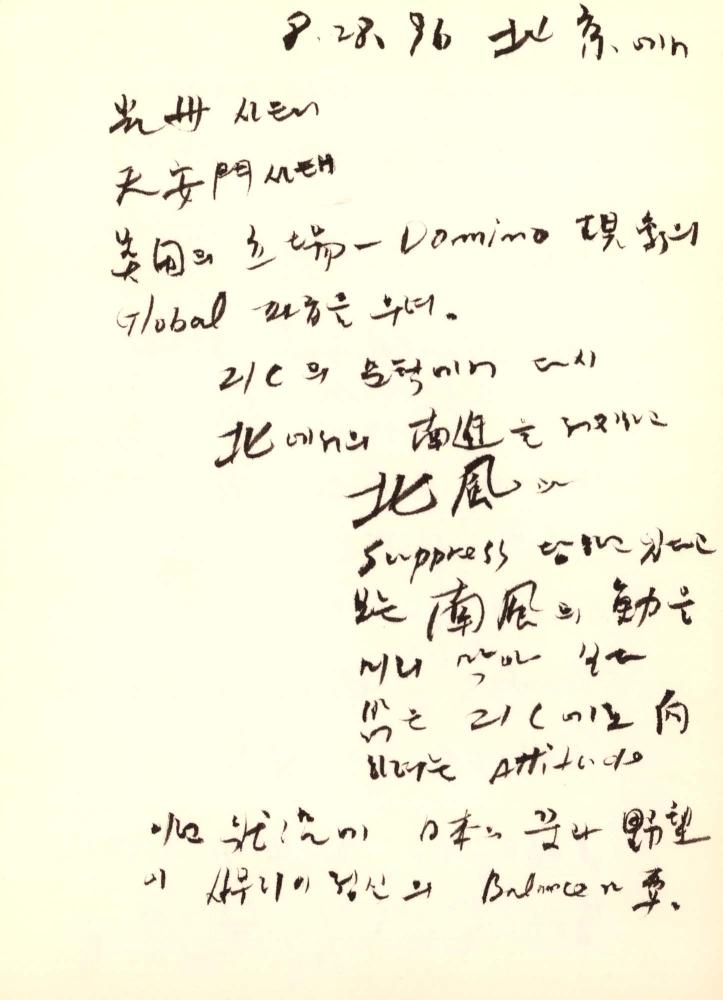 8.28.96 北京에서
光州 사태
天安門 사태
英國의 立場 - Domino 現象의
Global 파급을 우려.
21C의 문턱에서 다시
北에서의 南進을 저지하고
北風에
Suppress 당하고 있다고
보는 南風의 動을
미리 막아
남은 21C에로 向
하려는 Attitude
이런 狀況에 日本의 꿈과 野望
이 사무리이 정신의 Balance가 要.